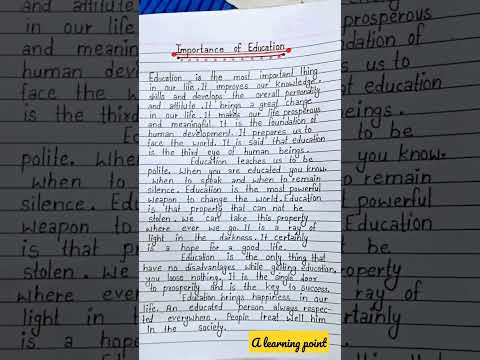 Importance of Education
Education is the most important thing
in our life. It improves our knowledge,
skills and develops the overall personality
and attitute. It brings a great change
in our life. It makes our life prosperous
and meaningful. It is the foundation of
human development. It prepares us to
face the world. It is said that education
is the third eye of human beings.
Education teaches us to be
polite. When you are educated you know
when to speak and when to remain
silence. Education is the most powerful
weapon to change the world. Education
is that property that can not be
stolen. We can take this property
where ever we go. It is a ray of
light in the darkness. It certainly
is a hope for a good life.
Education is the only thing that
have no disadvantages while getting education,
you loose nothing. It is the single door
to prosperity and is the key to success.
Education brings happiness in our
life. An educated person always respec-
ted everywhere. People treat well him
in the society.
A learning point